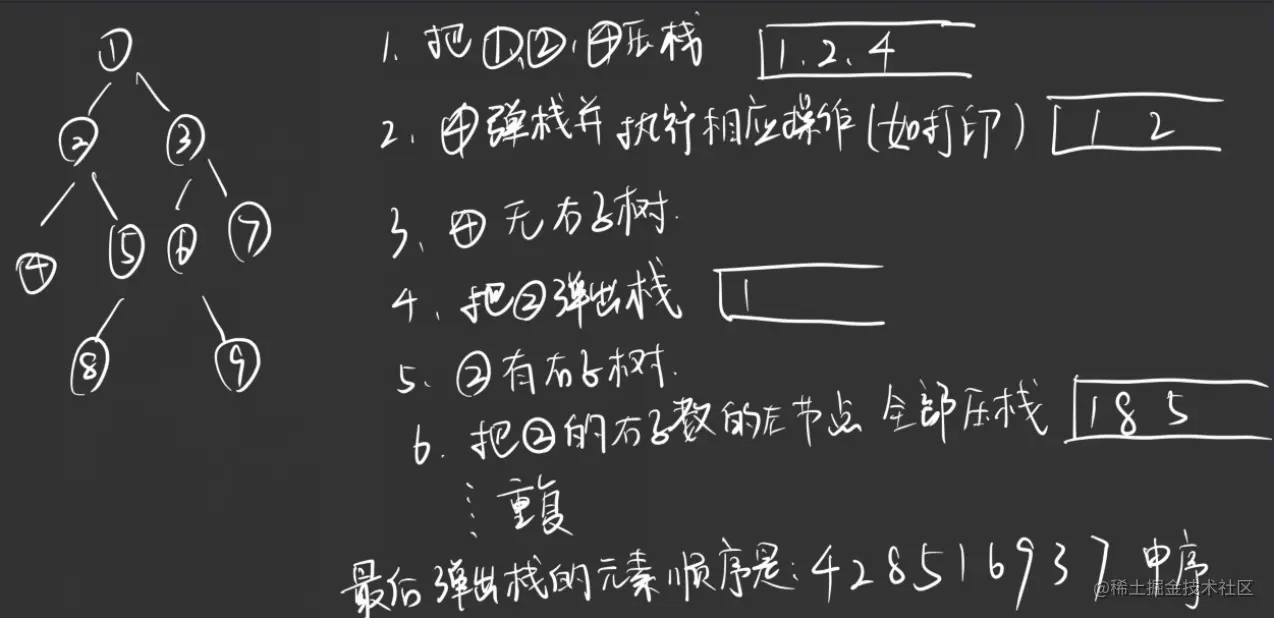 ①
1. 把①,②,④压栈 1.2.4
② ③
2. ④弹栈并执行相应操作(如打印) 1 2
④ ⑤ ⑥ ⑦
3. ④无右子树.
4. 把②弹出栈 1
⑧ ⑨
5. ②有右子树.
6. 把②的右子数的左节点 全部压栈 1 8 5
⋮ 重复
最后弹出栈的元素顺序是:428516937 中序
@稀土掘金技术社区